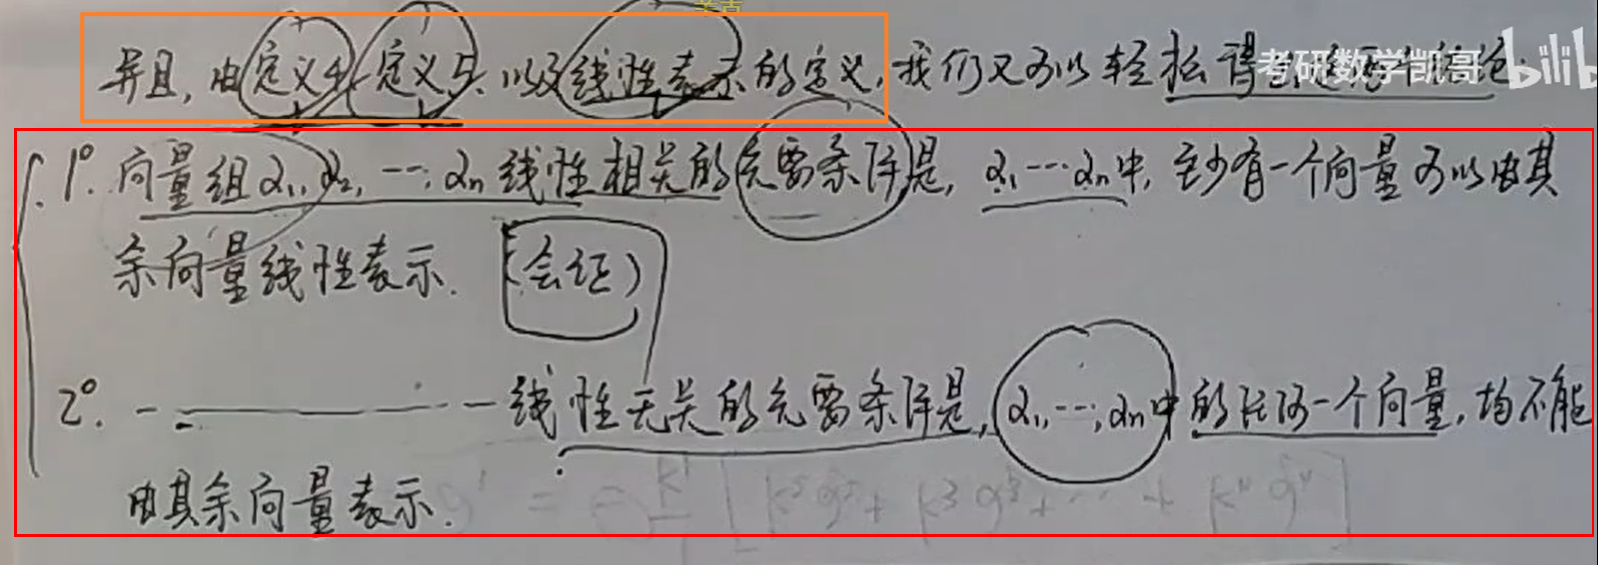 并且, 由定义4、定义5、以及线性表示的定义, 我们又可以轻松得
考研数学凯哥 bilib
1°. 向量组α₁, α₂, ···, αₙ 线性相关的充要条件是, α₁···αₙ中, 至少有一个向量可以由其
余向量线性表示. (会证)
2°. ———— 线性无关的充要条件是, α₁, ···, αₙ中的任何一个向量, 均不能
由其余向量表示.